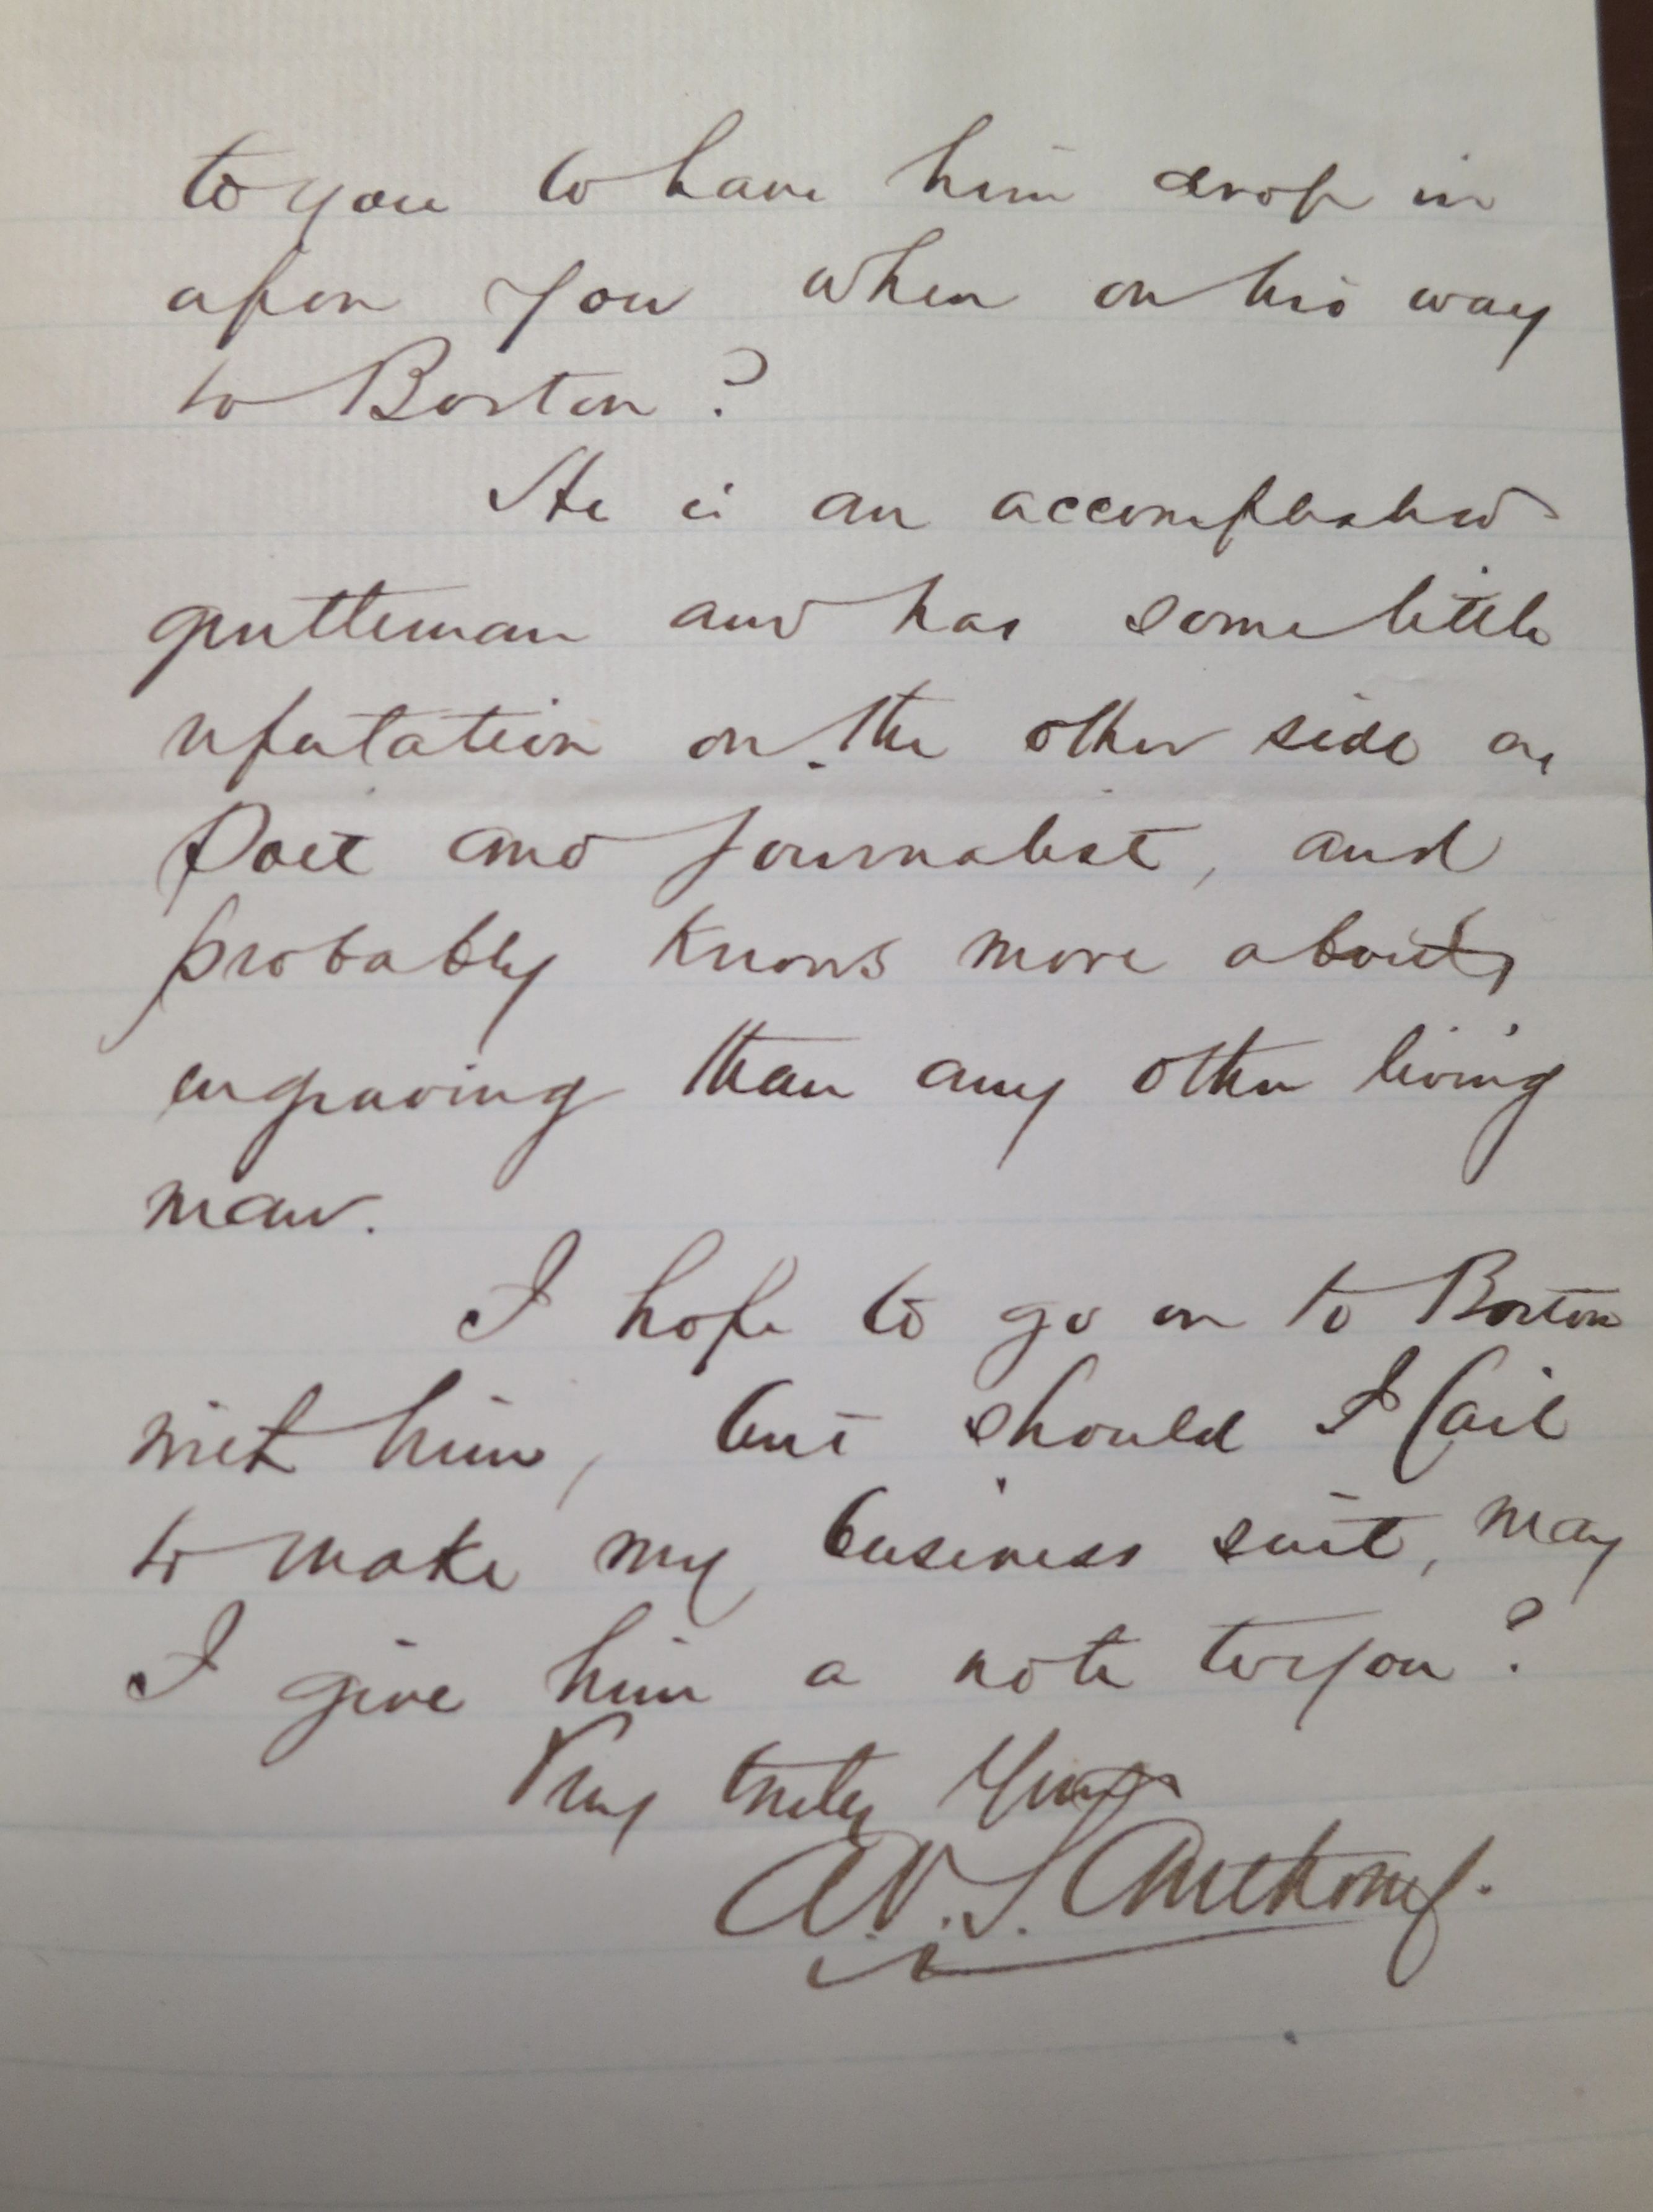 to you to have him drop in
upon you when on his way
to Boston?
He is an accomplished
gentleman and has some little
reputation on the other side as
Poet and Journalist, and
probably knows more about
engraving than any other living
man.
I hope to go on to Boston
with him, but should I fail
to make my business suit, may
I give him a note to you?
Very truly Yours
A.V.S. Anthony.